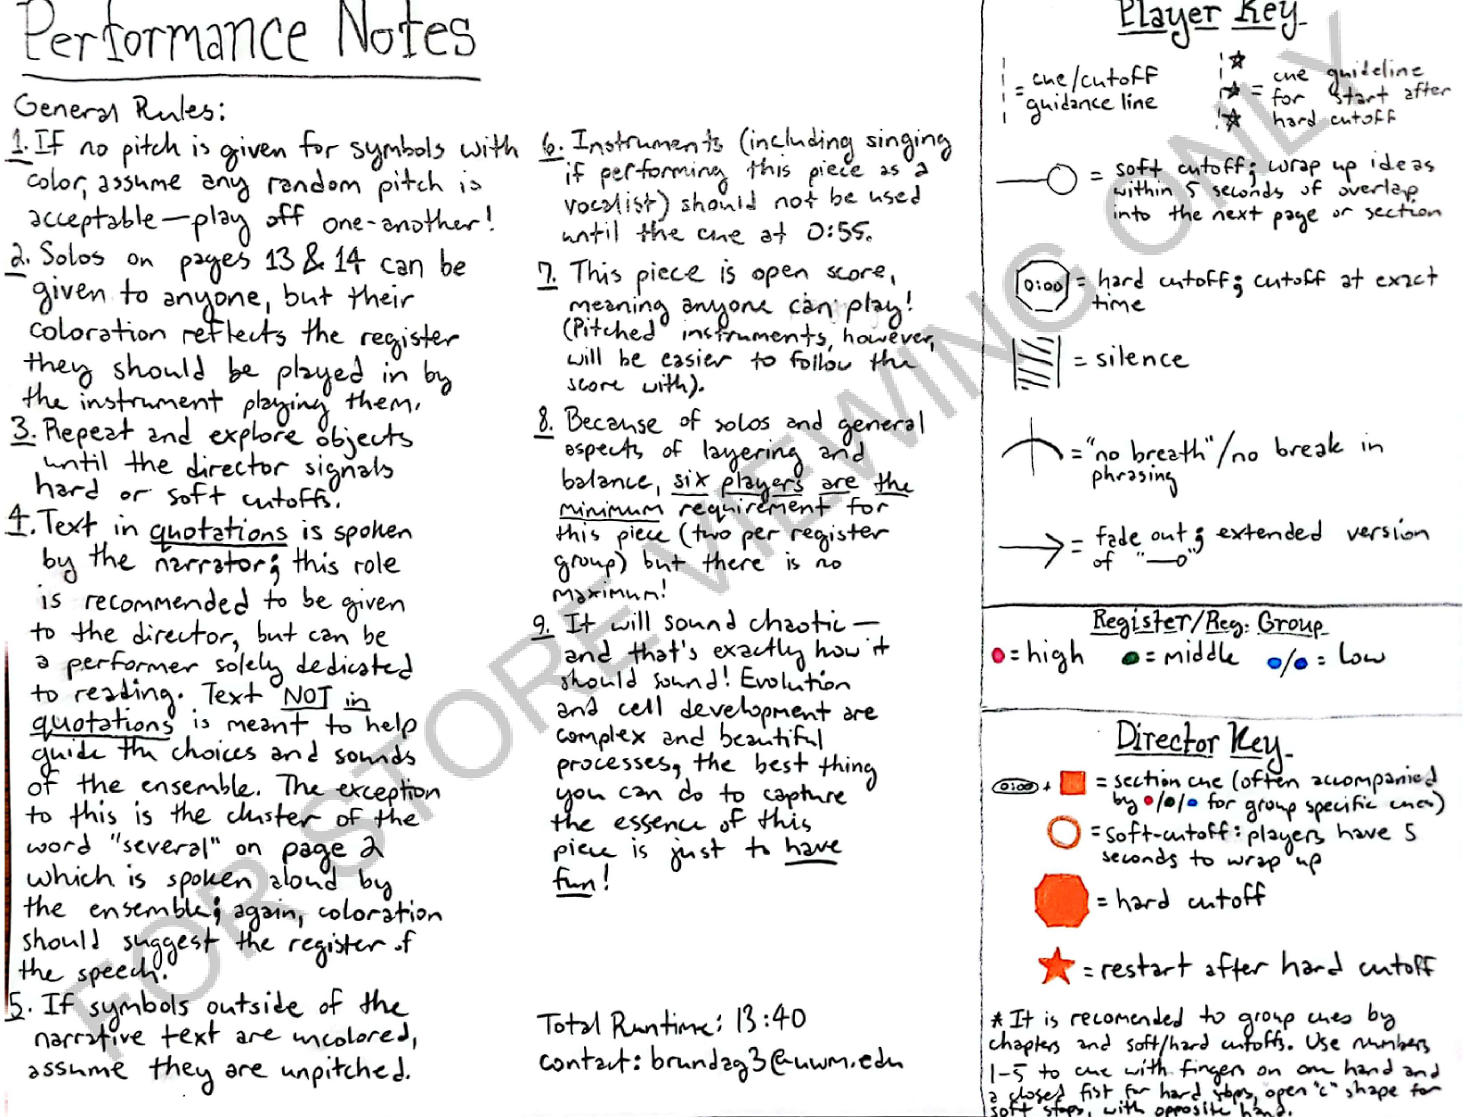 Performance Notes
General Rules:
1. If no pitch is given for symbols with
color, assume any random pitch is
acceptable—play off one-another!
2. Solos on pages 13 & 14 can be
given to anyone, but their
coloration reflects the register
they should be played in by
the instrument playing them.
3. Repeat and explore objects
until the director signals
hard or soft cutoffs.
4. Text in quotations is spoken
by the narrator; this role
is recommended to be given
to the director, but can be
a performer solely dedicated
to reading. Text NOT in
quotations is meant to help
guide the choices and sounds
of the ensemble. The exception
to this is the cluster of the
word "several" on page 2
which is spoken aloud by
the ensemble; again, coloration
should suggest the register of
the speech.
5. If symbols outside of the
narrative text are uncolored,
assume they are unpitched.
6. Instruments (including singing
if performing this piece as a
vocalist) should not be used
until the cue at 0:55.
7. This piece is open score,
meaning anyone can play!
(Pitched instruments, however,
will be easier to follow the
score with).
8. Because of solos and general
aspects of layering and
balance, six players are the
minimum requirement for
this piece (two per register
group) but there is no
maximum!
9. It will sound chaotic—
and that's exactly how it
should sound! Evolution
and cell development are
complex and beautiful
processes, the best thing
you can do to capture
the essence of this
piece is just to have
fun!
Total Runtime: 13:40
contact: brundag3@uwm.edu
Player Key
= cue/cutoff
guidance line
= cue guideline
for start after
hard cutoff
= soft cutoff; wrap up ideas
within 5 seconds of overlap
into the next page or section
0:00 = hard cutoff; cutoff at exact
time
= silence
= "no breath"/no break in
phrasing
= fade out; extended version
of "—o"
Register/Reg. Group
= high = middle / = low
Director Key
0:00 + = section cue (often accompanied
by / / for group specific cues)
= soft-cutoff: players have 5
seconds to wrap up
= hard cutoff
= restart after hard cutoff
* It is recomended to group cues by
chapters and soft/hard cutoffs. Use numbers
1-5 to cue with fingers on one hand and
a closed fist for hard stops, open "c" shape for
soft stops, with opposite hand.
FOR STORE VIEWING ONLY